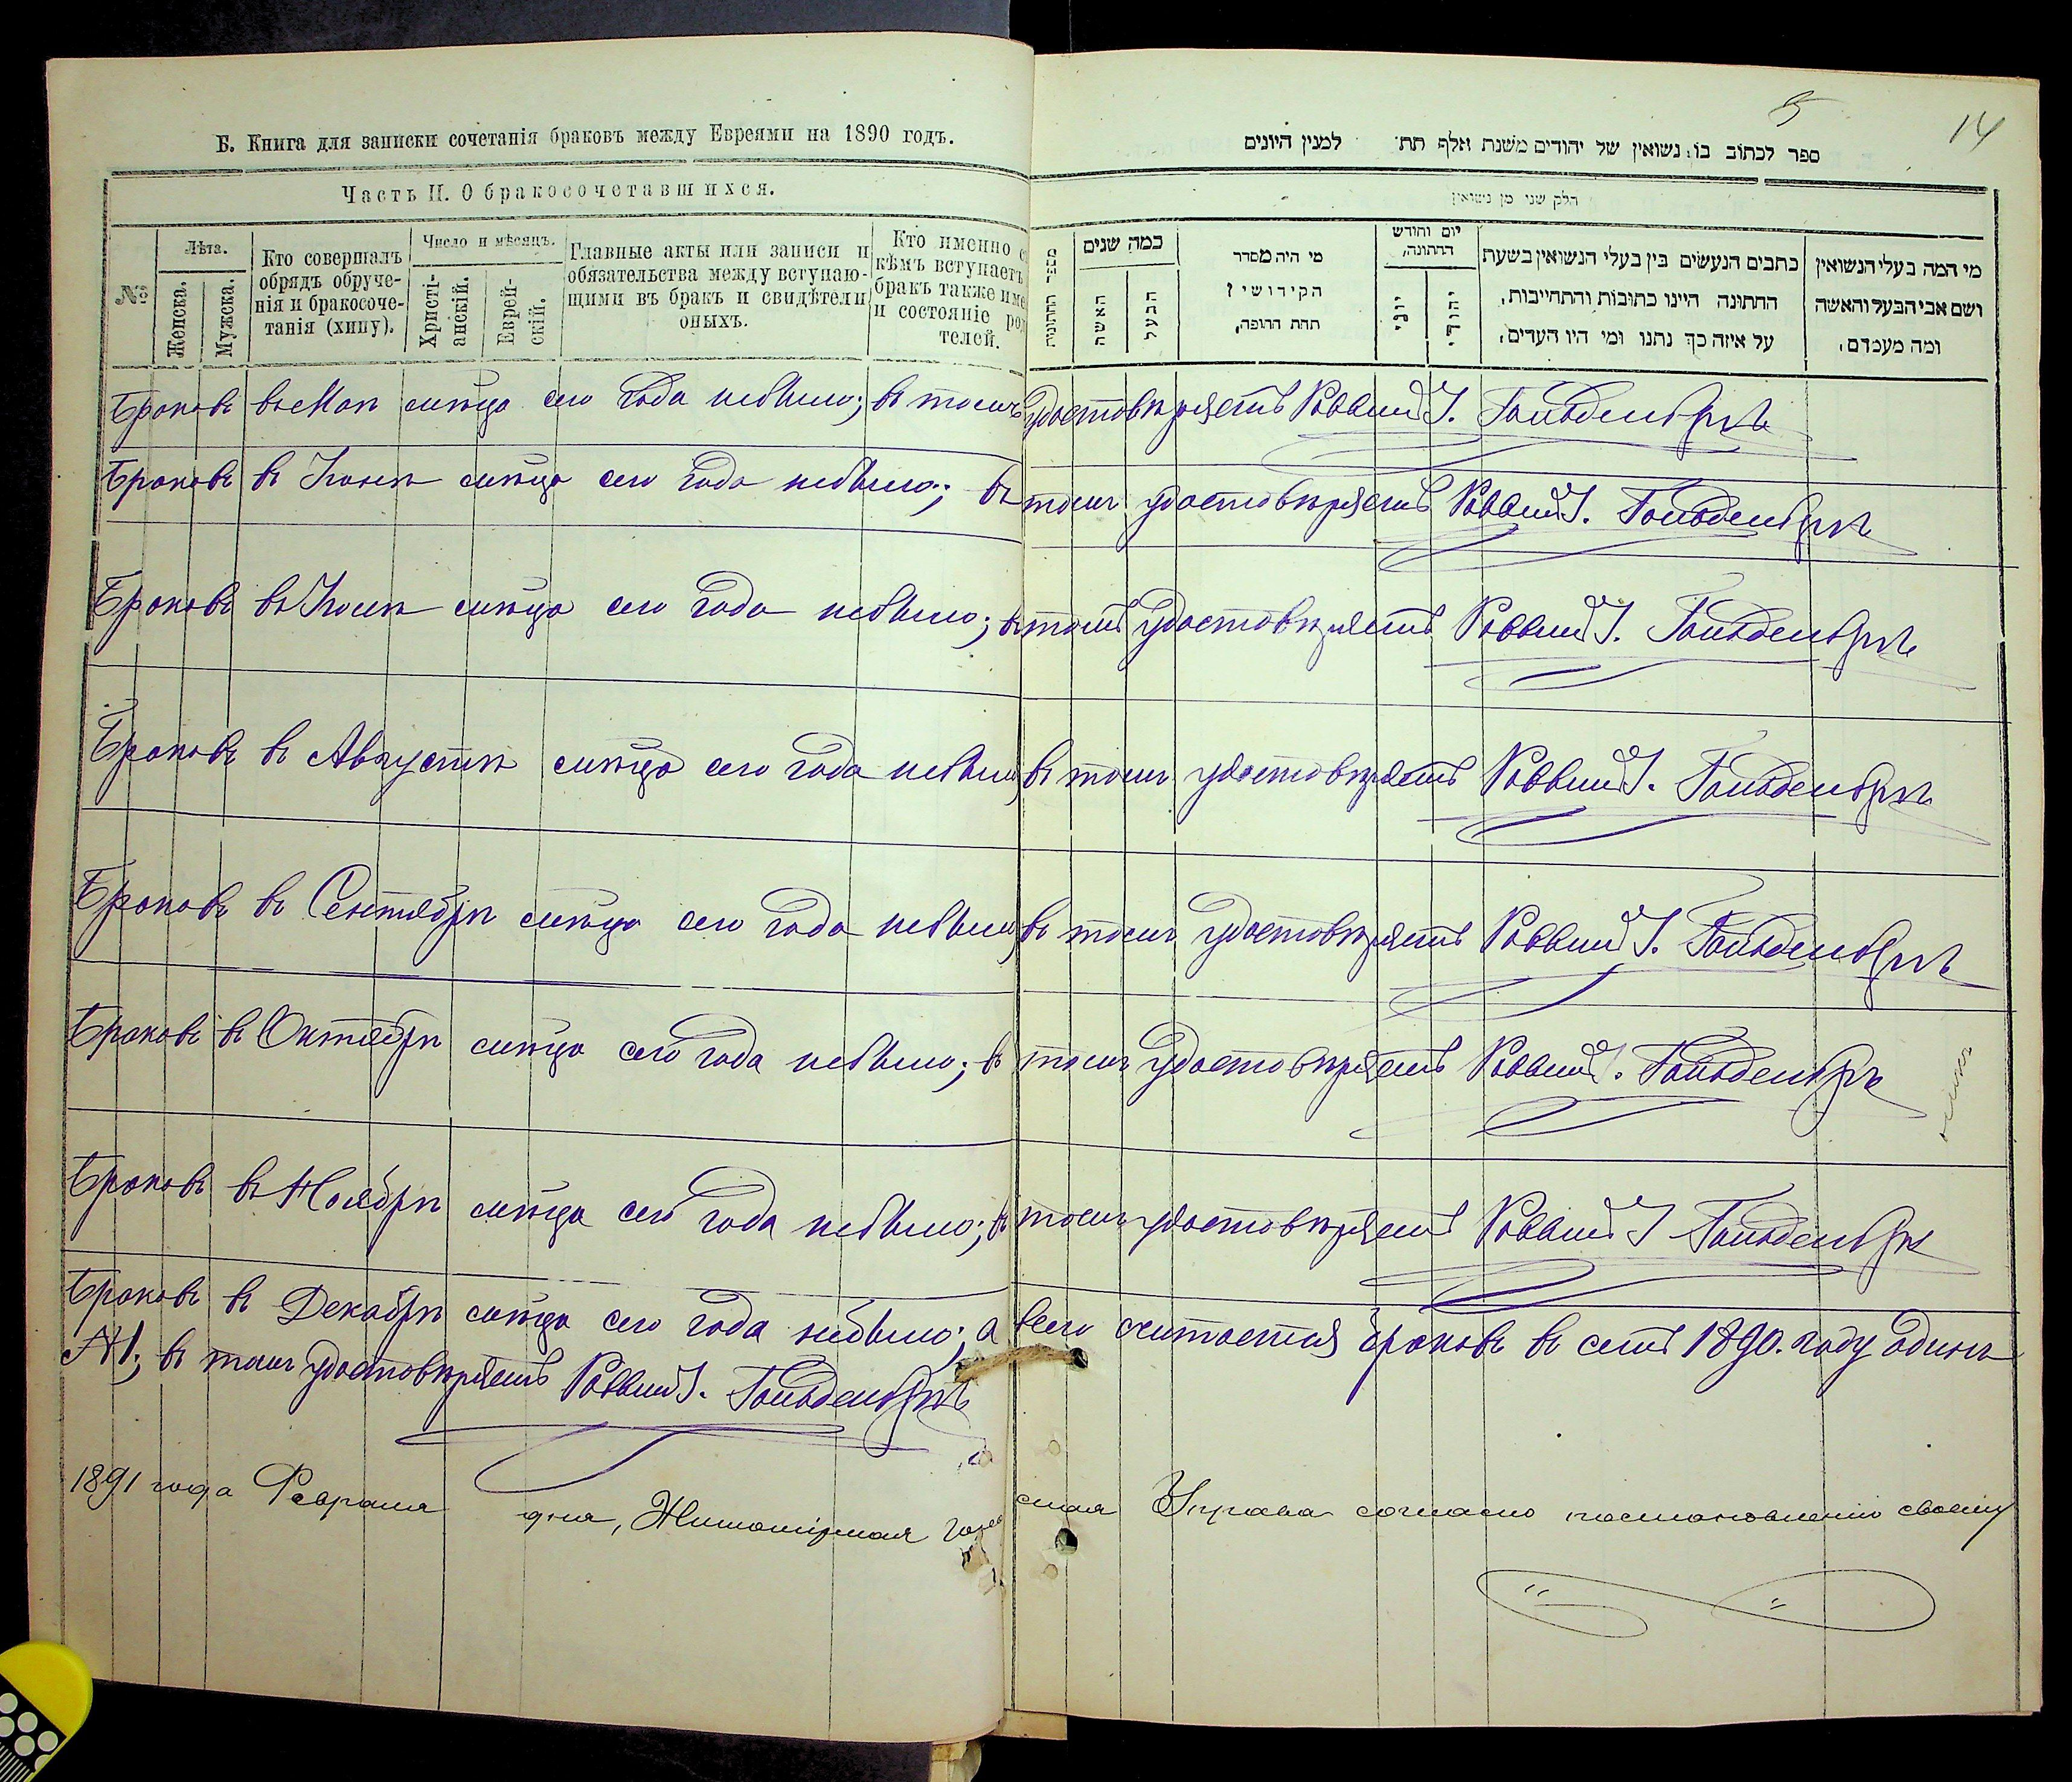 Б. Книга для записки сочетанія браковъ между Евреями на 1890 годъ.
Часть II. О бракосочетавшихся.
№
Лѣта.
Женска.
Мужска.
Кто совершалъ
обрядъ обруче-
нія и бракосоче-
танія (хипу).
Число и мѣсяцъ.
Христі-
анскій.
Еврей-
скій.
Главные акты или записи и
обязательства между вступаю-
щими въ бракъ и свидѣтели
оныхъ.
Кто именно с
кѣмъ вступаетъ
бракъ также име
и состояніе ро
телей.
5
14
ספר לכתוב בו נשואין של יהודים משנת אלף תת למנין היונים
חלק שני מן נישואין
מספר החתונות
כמה שנים
האשה
הבעל
מי היה מסדר
הקידושין
תחת החופה,
יום וחודש
החתונה,
יוני
יהודי
כתבים הנעשים בין בעלי הנשואין בשעת
החתונה היינו כתובות והתחייבות,
על איזה כך נתנו ומי היו העדים,
מי המה בעלי הנשואין
ושם אבי הבעל והאשה
ומה מעמדם,
Браковъ въ Маѣ мѣцѣ сего года небыло; въ томъ удостовѣряетъ Раввинъ І. Гольденбергъ
Браковъ въ Іюнѣ мѣцѣ сего года небыло; въ томъ удостовѣряетъ Раввинъ І. Гольденбергъ
Браковъ въ Іюлѣ мѣцѣ сего года небыло; въ томъ удостовѣряетъ Раввинъ І. Гольденбергъ
Браковъ въ Августѣ мѣцѣ сего года небыло; въ томъ удостовѣряетъ Раввинъ І. Гольденбергъ
Браковъ въ Сентябрѣ мѣцѣ сего года небыло; въ томъ удостовѣряетъ Раввинъ І. Гольденбергъ
Браковъ въ Октябрѣ мѣцѣ сего года небыло; въ томъ удостовѣряетъ Раввинъ І. Гольденбергъ
Браковъ въ Ноябрѣ мѣцѣ сего года небыло; въ томъ удостовѣряетъ Раввинъ І Гольденбергъ
Браковъ въ Декабрѣ мѣцѣ сего года небыло; а всего считается браковъ въ семъ 1890. году одинъ
№1; въ томъ удостовѣряетъ Раввинъ І. Гольденбергъ
1891 года Февраля дня, Житомірская Городская Управа согласно постановленію своему